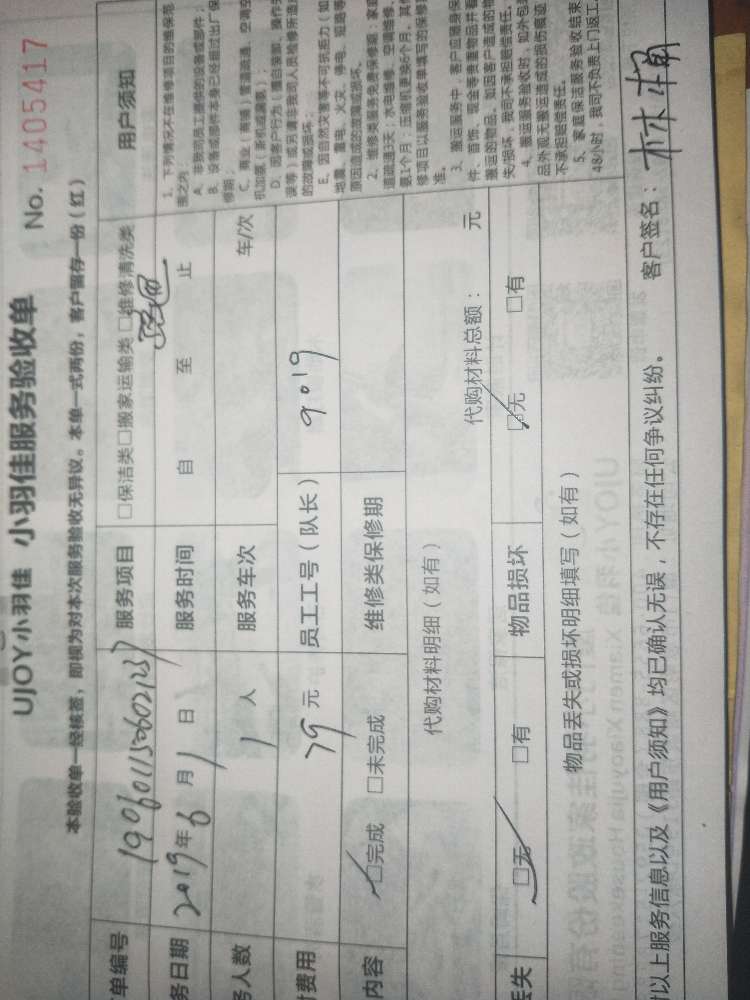 UJOY小羽佳 小羽佳服务验收单 No. 1405417
本验收单一经核签，即视为对本次服务验收无异议。本单一式两份，客户留存一份（红）
单编号 服务项目 □保洁类□搬家运输类□维修清洗类
务日期 2019年6月1日 服务时间 自 至 止
务人数 1人 服务车次 车/次
付费用 79元 员工工号（队长） 9019
内容 □完成 □未完成 维修类保修期
代购材料明细（如有） 代购材料总额： 元
丢失 □无 □有 物品损坏 □无 □有
物品丢失或损坏明细填写（如有）
用户须知
1、下列情况不在维修项目的维保范
围之内：
A、非我司员工提供的设备或部件；
B、设备或部件本身已经超过出厂保
修期；
C、商业（商铺）管道疏通、空调空
机加氨（新机或漏氨）；
E、因自然灾害等不可抗拒力（如
地震、雷电、火灾、停电、短路等
原因造成的故障或损坏。
2、维修类服务免费保修期：家庭
道疏通3天；水电维修、空调维修、
氨1个月；压缩机更换6个月。其他
修项目以服务验收单填写的保修期
准。
3、搬运服务中，客户应随身保
件、首饰、现金等贵重物品并看
搬运的物品。如因客户造成的物
失/损坏，我司不承担赔偿责任。
4、搬运服务验收时，如外包装
品外观无搬运造成的损伤痕迹
不承担赔偿责任。
5、家庭保洁服务验收结束
48小时，我司不负责上门返工
以上服务信息以及《用户须知》均已确认无误，不存在任何争议纠纷。 客户签名：